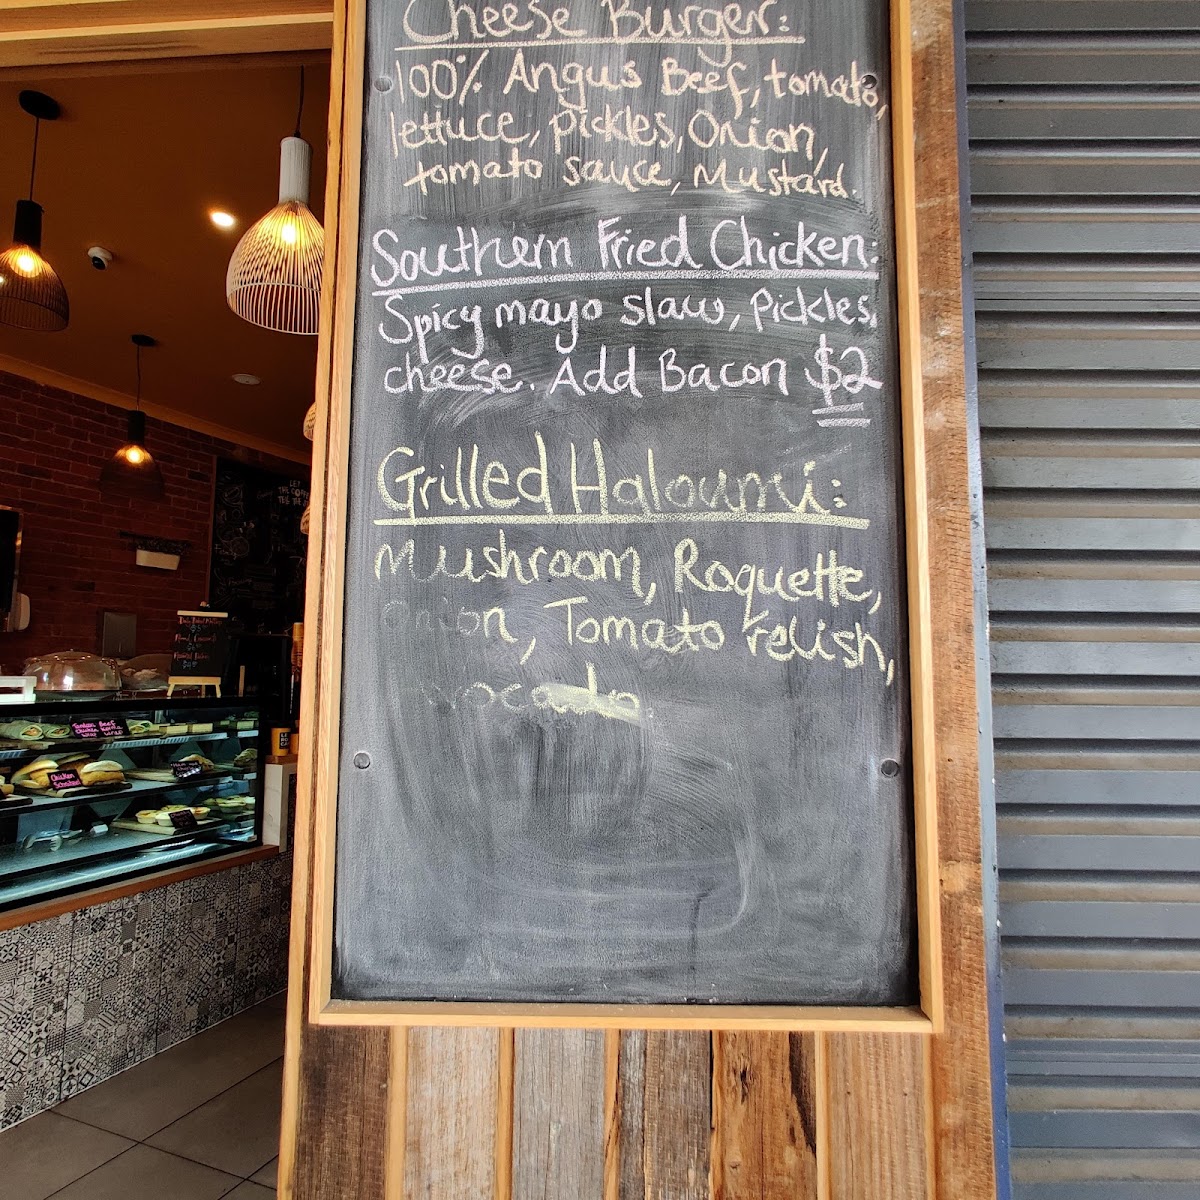 Cheese Burger:
100% Angus Beef, tomato,
lettuce, pickles, Onion,
tomato sauce, Mustard.
Southern Fried Chicken:
Spicy mayo slaw, Pickles,
cheese. Add Bacon $2
Grilled Haloumi:
Mushroom, Roquette,
onion, Tomato relish,
avocado.
Chicken
Schnitzel